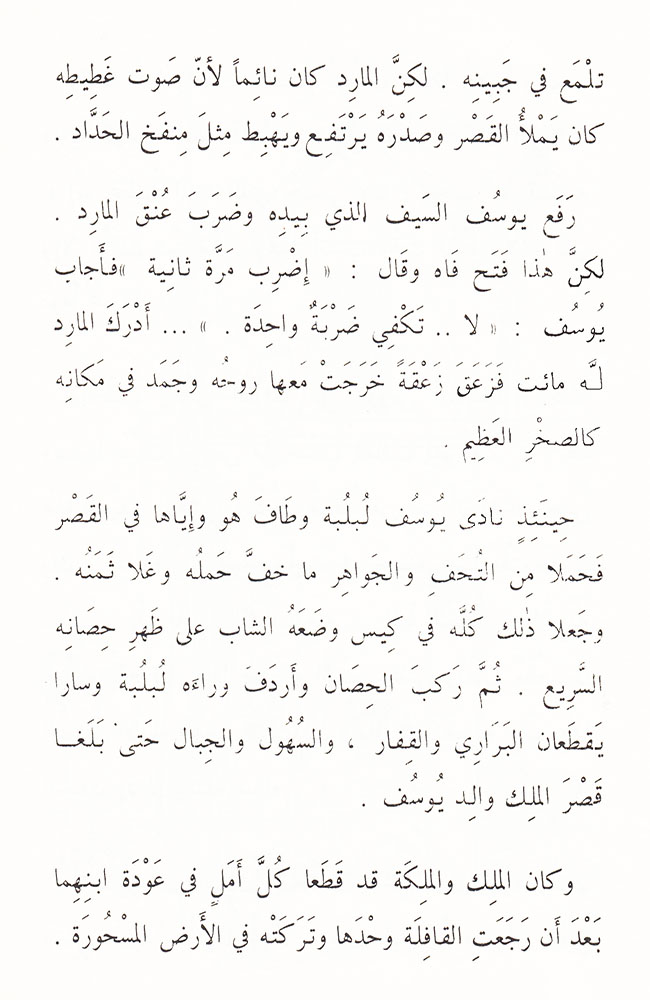 تلْمَع في جَبِينِه . لكِنَّ المارِد كان نائِماً لأنّ صَوت غَطِيطِه
كان يَمْلأُ القَصْر وصَدْرَهُ يَرْتَفِع ويَهْبِط مِثلَ مِنفَخ الحَدَّاد .
رَفَع يوسُف السَيف الذي بِيدِه وضَرَبَ عُنْقَ المارِد .
لكِنَّ هٰذا فَتَح فَاه وقَال : « إِضْرِب مَرَّة ثانِية » فأَجاب
يُوسُف : « لا .. تَكْفِي ضَرْبَةٌ واحِدَة . » ... أَدْرَكَ المارِد
لـَّه مائت فَزَعَقَ زَعْقَةً خَرَجَتْ مَعها روحُه وجَمَد في مَكانِه
كالصخْرِ العَظِيم .
حِينَئِذٍ نادَى يُوسُف لُبلُبة وطَافَ هُو وإِيَّاها في القَصْر
فَحَمَلا مِن التُحَفِ والجَواهِر ما خفَّ حَملُه وغَلا ثَمَنُه .
وجَعلا ذٰلك كُلَّه في كِيس وضَعَهُ الشاب على ظَهرِ حِصَانِه
السَّرِيع . ثُمَّ رَكبَ الحِصَان وأَردَفَ وراءَه لُبلُبة وسارا
يَقطَعان البَرَارِي والقِفار ، والسُهُول والجِبال حَتى بَلَغـا
قَصْرَ الملِك والِد يُوسُف .
وكان الملِك والملِكَة قد قَطَعا كُلَّ أَمَلٍ في عَوْدَة ابنِهِما
بَعْدَ أَن رَجَعَتِ القافِلَة وحْدَها وتَرَكَتْه في الأَرض المسْحُورَة .